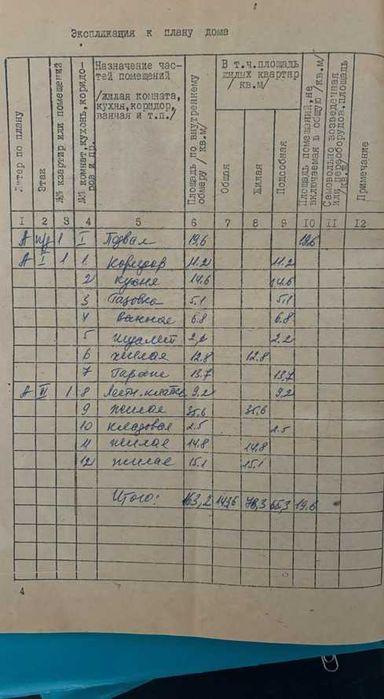 Экспликация к плану дома
Литер по плану
Этаж
№№ квартир или помещений
№№ комнат, кухонь, коридоров и пр.
Назначение частей помещений /жилая комната, кухня, коридор, ванная и т.п./
Площадь по внутреннему обмеру / кв.м/
В т.ч. площадь жилых квартир / кв.м/
Общая
Жилая
Подсобная
Площадь помещений, не включаемая в общую /кв.м/
Самовольно возведенная или переоборудов. площадь /кв.м/
Примечание
1 2 3 4 5 6 7 8 9 10 11 12
А п/д 1 I Подвал 19,6 19,6
А I 1 1 Коридор 11.2 11.2
2 Кухня 14.6 14.6
3 5.1 5.1
4 Ванная 6.8 6.8
5 туалет 2,2 2,2
6 жилая 12,8 12,8
7 Гараж 13,7 13,7
А II 1 8 Лестн. клетка 9,2 9,2
9 жилая 35,6 35,6
10 кладовая 2.5 2.5
11 жилая 14.8 14.8
12 жилая 15.1 15.1
Итого: 163,2 143,6 78,3 65,3 19.6
4